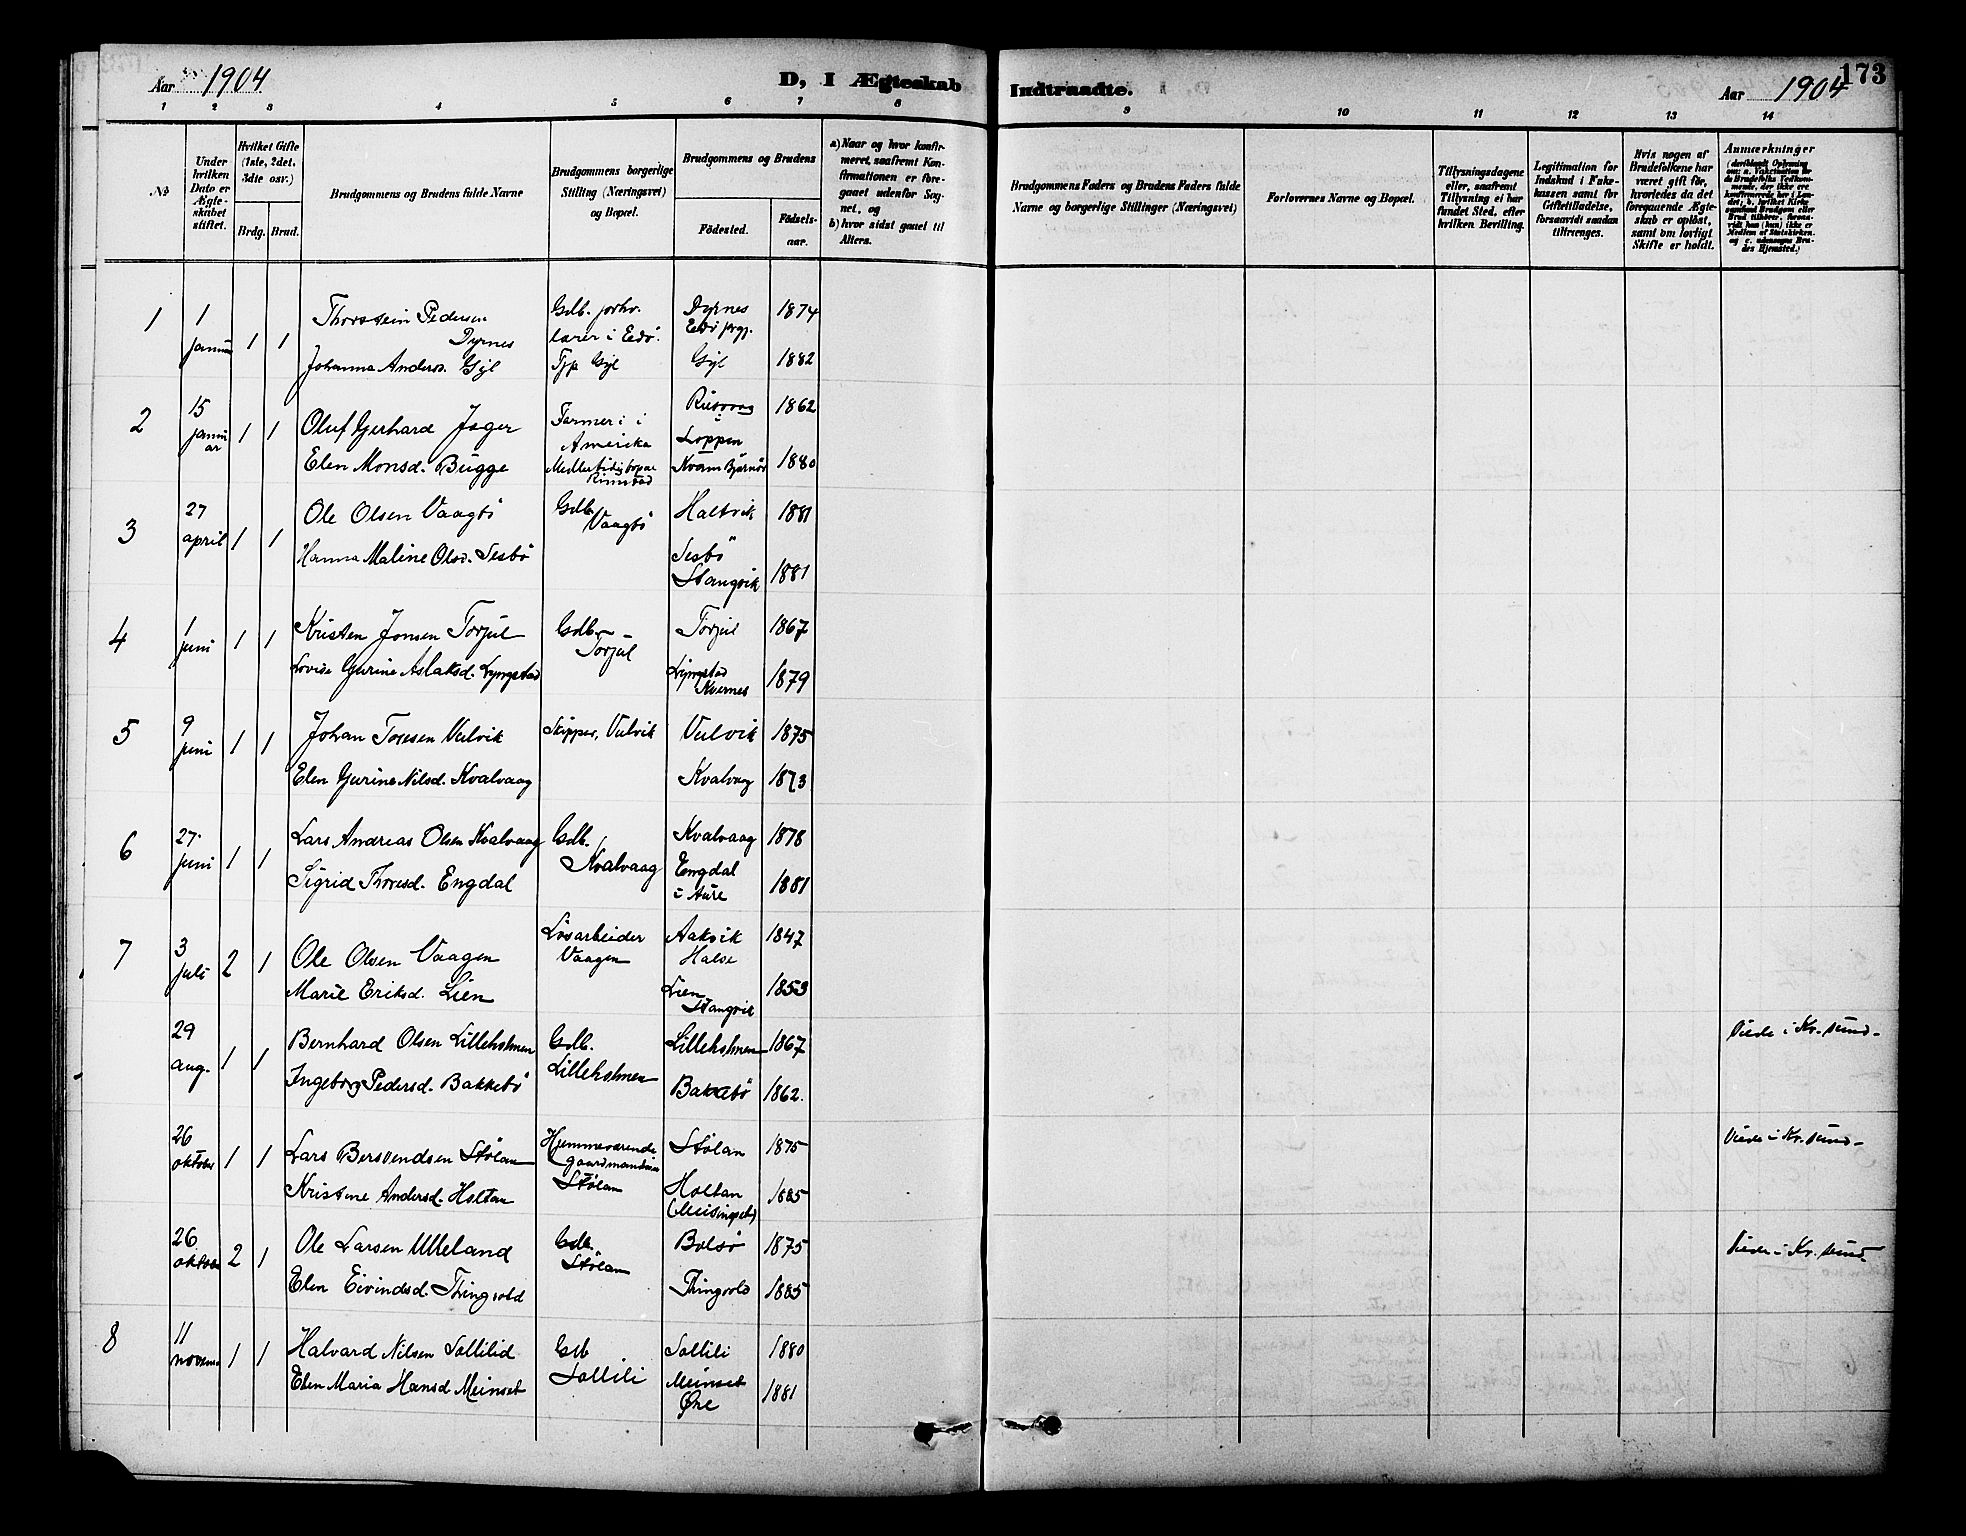 Aar 1904
D, I Ægteskab Indtraadte.
Aar 1904
173
1 2 3 4 5 6 7 8 9 10 11 12 13 14
No
Under hvilken Dato er Ægteskabet stiftet.
Hvilket Gifte (1ste, 2det, 3dte osv.)
Brdg. Brud.
Brudgommens og Brudens fulde Navne
Brudgommens borgerlige Stilling (Næringsvei) og Bopæl.
Brudgommens og Brudens
Fødested.
Fødselsaar.
a) Naar og hvor konfirmeret, saafremt Konfirmationen er foregaaet udenfor Sognet, og
b) hvor sidst gaaet til Alters.
Brudgommens Faders og Brudens Faders fulde Navne og borgerlige Stillinger (Næringsvei)
Forlovernes Navne og Bopæl.
Tillysningsdagene eller, saafremt Tillysning ei har fundet Sted, efter hvilken Bevilling.
Legitimation for Indskud i Enkekassen samt for Giftetilladelse, forsaavidt saadan tiltrænges.
Hvis nogen af Brudefolkene har været gift før, hvorledes da det foregaaende Ægteskab er opløst, samt om lovligt Skifte er holdt.
Anmærkninger
1 1 januar 1 1 Thorstein Pedersen Dyrnes Gdb. forhv. lærer i Edø. Dyrnes Edø prgj. 1874
Johanna Anders. Gjl Gjl 1882
2 15 januar 1 1 Oluf Gerhard Jager Farmer i Amerika Loppen 1862
Elen Monsd. Bugge Rimstad Kvam Bjørnør 1880
3 27 april 1 1 Ole Olsen Vaagbø Gdb. Vaagbø Haltvik 1881
Hanna Maline Olsd. Sesbø Sesbø Stangvik 1881
4 1 juni 1 1 Kristen Jonsen Torjul Gdb. Torjul Torjul 1867
Lovise Gurine Aslaksd. Lyngstad Lyngstad Kvernes 1879
5 9 juni 1 1 Johan Toresen Vulvik Skipper, Vulvik Vulvik 1875
Elen Gurine Nilsd. Kvalvaag Kvalvag 1873
6 27 juni 1 1 Lars Andreas Olsen Kvalvaag Gdb. Kvalvaag Kvalvaag 1878
Sigrid Thoresd. Engdal Engdal i Aure 1881
7 3 juli 2 1 Ole Olsen Vaagen Løsarbeider Vaagen Aakvik Halse 1847
Marie Eriksd. Lien Lien Stangvik 1853
29 aug. 1 1 Bernhard Olsen Lilleholmen Gdb. Lilleholmen Lilleholmen 1867 Viede i Kr.sund
Ingeborg Pedersd. Bakkebø Bakkebø 1862.
26 oktober 1 1 Lars Bersvendsen Stølan Hjemmeværende gaardmandssøn Stølan Stølan 1875 Viede i Kr.sund
Kristine Andersd. Holtan Holtan (Meisingset) 1885
26 oktober 2 1 Ole Larsen Ulleland Gdb. Stølan Bolsø 1875 Viede i Kr.sund
Elen Eivindsd. Thingvold Thingvold 1885
8 11 november 1 1 Halvard Nilsen Sollilid Gdb Sollili Sollili 1880
Elen Maria Hansd Meinset Meinset Øre 1881